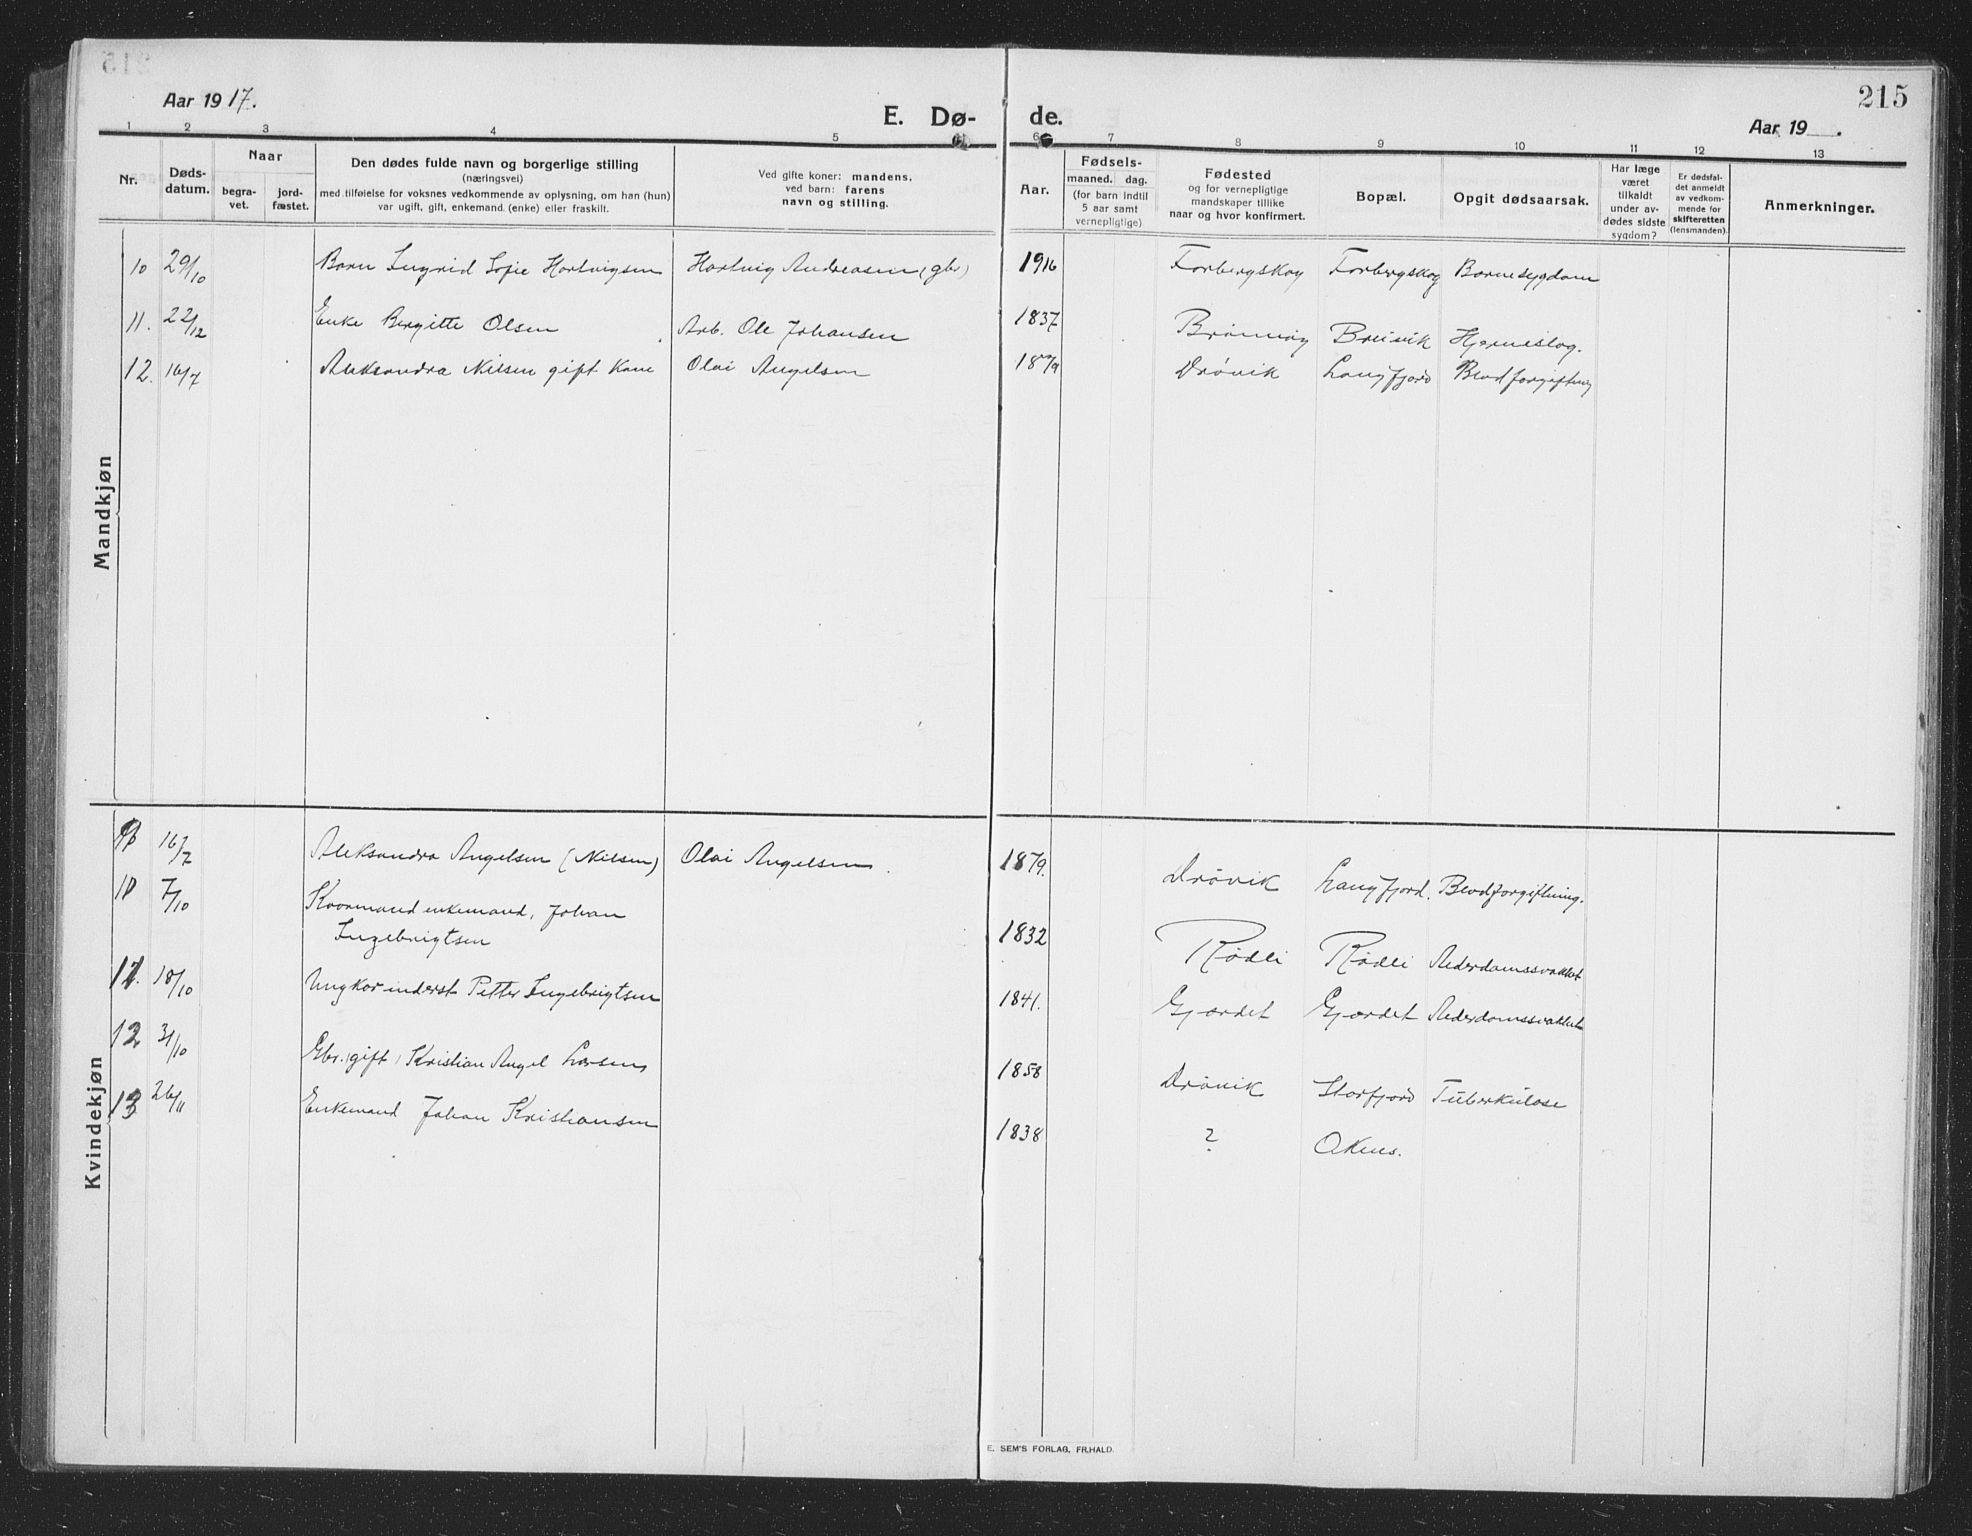 215
Aar 1917.
E. Dø- de.
Aar 19 .
1 2 3 4 5 6 7 8 9 10 11 12 13
Nr.
Døds-
datum.
Naar
begra-
vet.
jord-
fæstet.
Den dødes fulde navn og borgerlige stilling
(næringsvei)
med tilføielse for voksnes vedkommende av oplysning, om han (hun)
var ugift, gift, enkemand. (enke) eller fraskilt.
Ved gifte koner: mandens,
ved barn: farens
navn og stilling.
Aar.
Fødsels-
maaned. dag.
(for barn indtil
5 aar samt
vernepligtige)
Fødested
og for vernepligtige
mandskaper tillike
naar og hvor konfirmert.
Bopæl.
Opgit dødsaarsak.
Har læge
været
tilkaldt
under av-
dødes sidste
sygdom?
Er dødsfal-
det anmeldt
av vedkom-
mende for
skifteretten
(lensmanden).
Anmerkninger.
Mandkjøn
10 29/10 Barn Ingrid Sofie Hartvigsen Hartvig Andreasen (gbr) 1916 Forbergskog Forbergskog Barnesygdom
11. 22/12 Enke Bergitte Olsen Arb. Ole Johansen 1837 Brønnøy Bruvik Hjerneslag.
12. 16/7 Aleksandra Nilsen gift Kone Olai Angelsen 1879 Drövik Langfjord Blodforgiftning
Kvindekjøn
16/7 Aleksandra Angelsen (Nilsen) Olai Angelsen. 1879. Drövik Langfjord. Blodforgiftning.
10 7/10 Kaarmand enkemand, Johan
Ingebrigtsen 1832 Rødli Rødli Alderdomssvakhet
11. 18/10 Ungkar inderst Petter Ingebrigtsen 1841. Gjærdet Gjærdet Alderdomssvakhet
12 31/10 Gbr. (gift) Kristian Angel Larsen 1858 Drövik Storfjord Tuberkulose
13 26/11 Enkemand Johan Kristiansen 1838 ? Okens.
E. SEM'S FORLAG, FR.HALD.